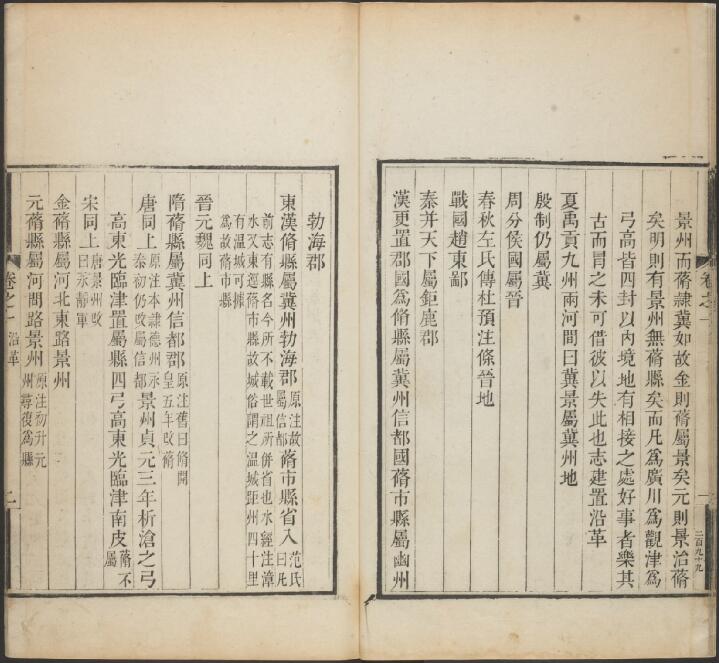 景州而蓨隸冀如故金則蓨屬景矣元則景治蓨
矣明則有景州無蓨縣矣而凡爲廣川爲觀津爲
弓高皆四封以內境地有相接之處好事者樂其
古而冒之未可借彼以失此也志建置沿革
夏禹貢九州兩河間曰冀景屬冀州地
殷制仍屬冀
周分侯國屬晉
春秋左氏傳杜預注條晉地
戰國趙東鄙
秦并天下屬鉅鹿郡
漢更置郡國爲脩縣屬冀州信都國蓨市縣屬幽州
卷之一
二百九十九
勃海郡
東漢脩縣屬冀州勃海郡原注故屬信都蓨市縣省入范氏曰凡
前志有縣名今所不載世祖所併省也水經注漳
水又東逕蓨市縣故城俗謂之温城距州四十里
有温城可據
爲故蓨市縣
晉元魏同上
隋蓨縣屬冀州信都郡原注舊曰脩開皇五年改蓨
唐同上原注本隸德州永泰初仍改屬信都景州貞元三年析滄之弓
高東光臨津置屬縣四弓高東光臨津南皮蓨不屬
宋同上唐景州改曰永靜軍
金蓨縣屬河北東路景州
元蓨縣屬河間路景州原注初升元州尋復爲縣
卷之一 沿革
二